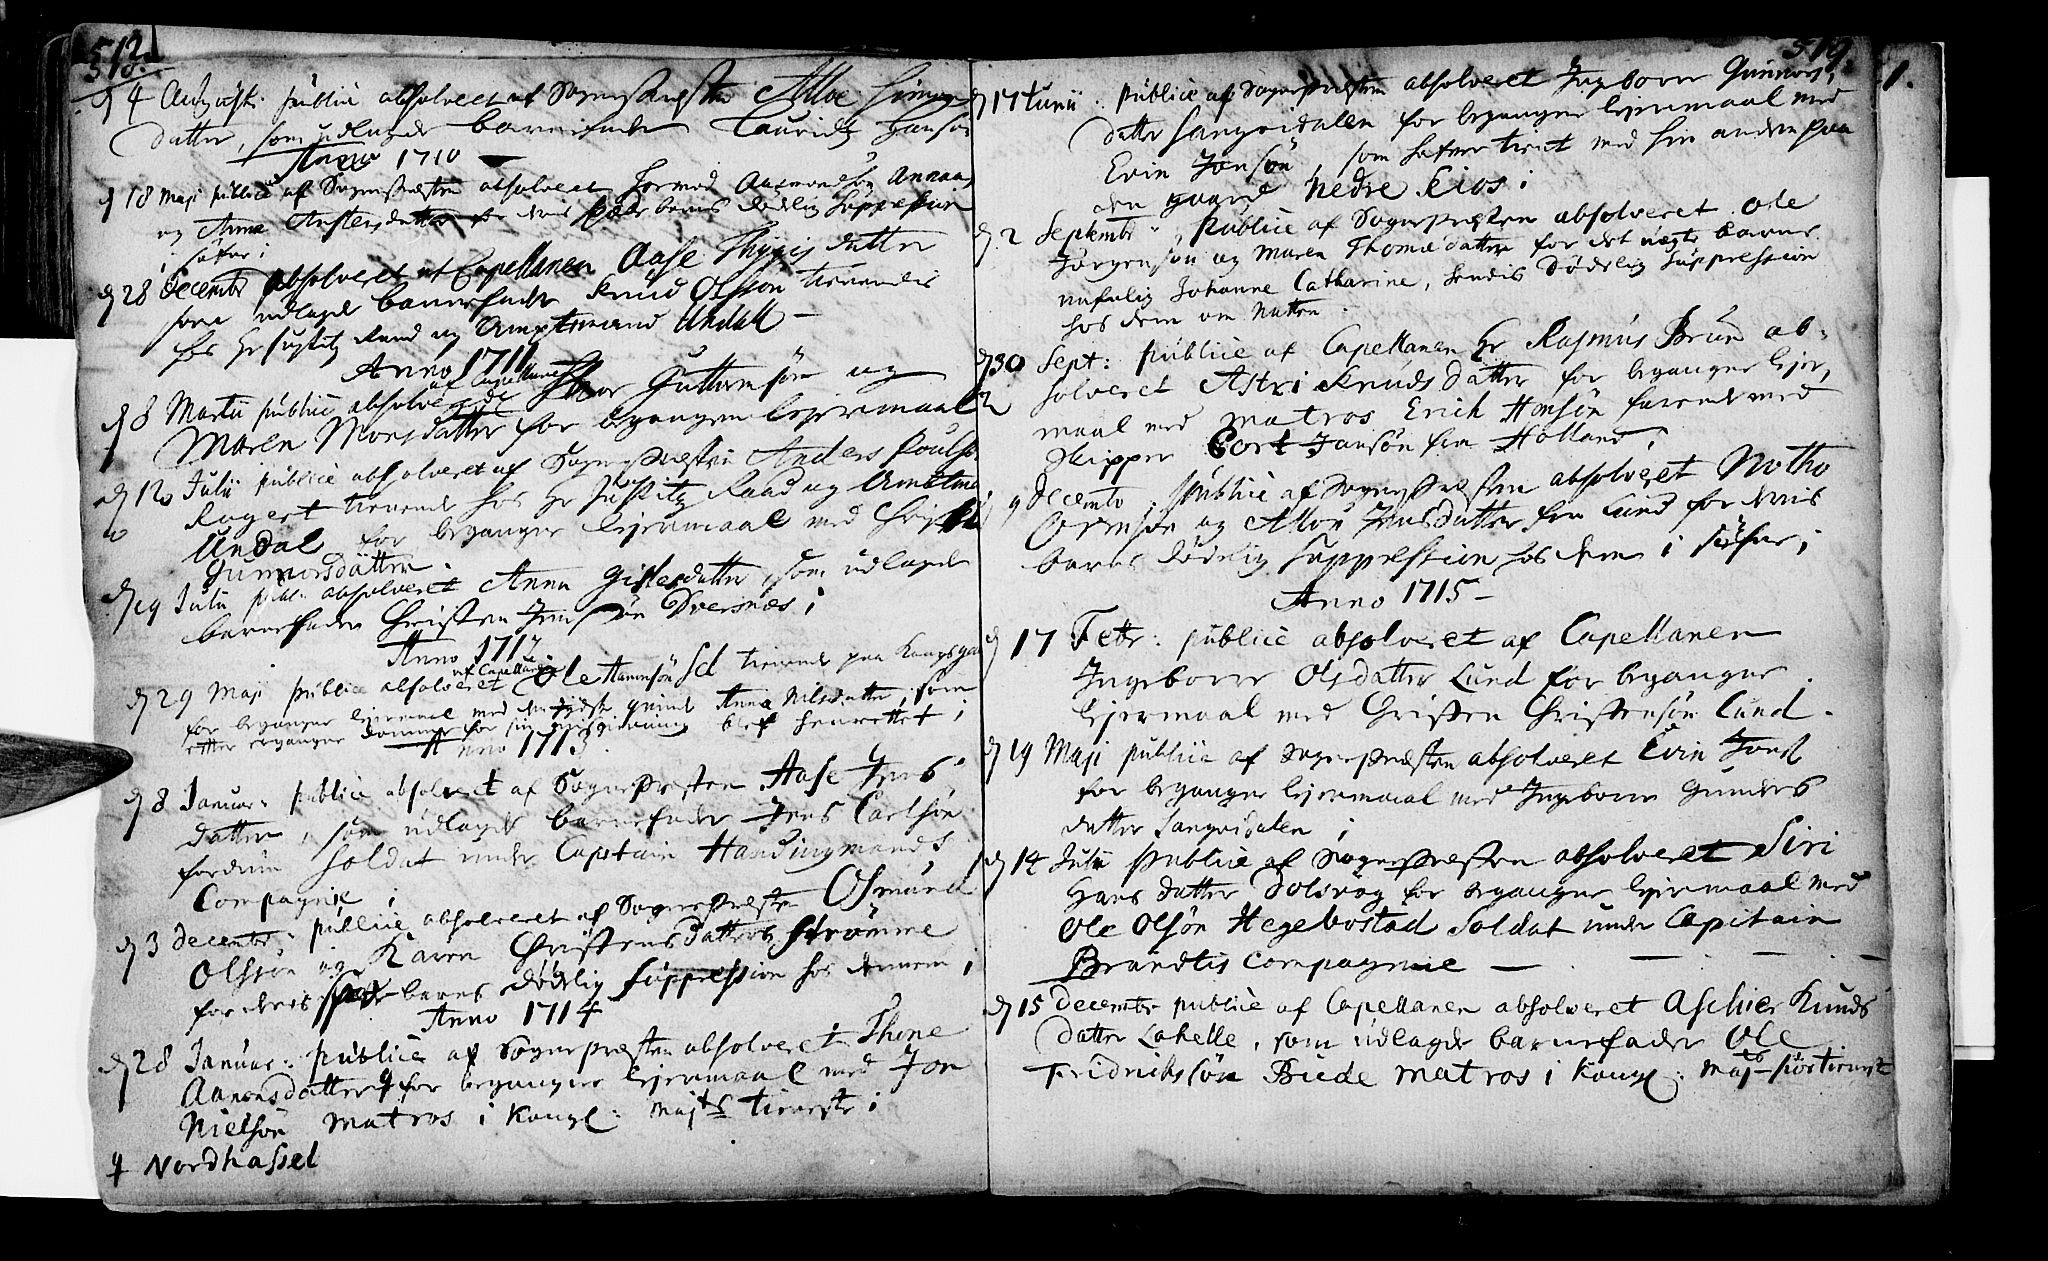 518.
d 4 August: publice absolveret af Sognepræsten Alloe Simons
datter, som udlagde barnefader Lauridz Hansøn
Anno 1710
d 18 Maji publice af Sognepræsten absolveret Tormod Aamondsøn
og Anna Austensdatter for deris spæde barns dødelig suppression
i søfne;
d 28 Decembr absolveret af Capellanen Aase Thygis datter
som udlagde barnefader Knud Olsøn tienendes
hos Hr Justitz Raad og Amptmand Undall
Anno 1711
d 8 Martii publice absolverede af Capellanen Thor Guttormsøn og
Maren Monsdatter for begangen lejermaal
d 12 Julii publice absolveret af Sognepræsten Anders Poulsøn
Rogert tienende hos Hr Justitz Raad og Amptmand
Undal for begangne lejermaal med
Gunnorsdatter
d 19 Julii publ: absolveret Anna Gislesdatter, som udlagde
barnefader Christen Jensøn Dversnæs;
Anno 1712
d 29 Maji publice absolveret af Capellanen Ole Hammersøn tienende paa Kongsgaard
for begangne lejermaal med det qvinde Anna Nilsdatter, som
efter ergangne domme for sin misgierning blef henrettet;
Anno 1713
d 8 Januar: publice absolveret af Sognepræsten Aase Jens
datter, som udlagde barnefader Jens Carlsøn
fordum soldat under Captain Haudingmands
Compagnie;
d 3 Decembr: publice absolveret af Sognepræsten Osmund
Olsson og Karen Christens datter Strømme
for deris spæde barns dødelig suppression hos dennem;
Anno 1714
d 28 Januar: publice af Sognepræsten absolveret Thine
Aanonsdatter ꝗ for begangne lejermaal med Jon
Nielsøn matros i Kongl: Majts tieniste;
ꝗ Nordhassel
519.
d 17 Junii: publice af Sognepræsten absolveret Ingborre Gunnors
datter Langeidalen for begangne lejermaal med
Evin Jonsøn, som hafver tient med hin anden paa
den gaard Nedre Eios;
d. 2 Septembr: publice af Sognepræsten absolveret Ole
Jørgensøn og Maren Thomædatter for det ægte barns
nafnlig Johanne Catharine, hendis dødelig suppression
hos dem om natten.
d 30 Sept: publice af Capellanen Hr Rasmus Brun ab-
solveret Astri Knuds datter for begangne lejer,
maal med matros Erich Hansøn farende med
Skipper Cort Jansøn fra Holland;
9 Decembr, publice af Sognepræsten absolveret Notho
Ormsøn og Allou Jensdatter fra Lund for deris
barns dødelig suppression hos dem i søfne;
Anno 1715
d 17 Febr: publice absolveret af Capellanen
Ingeborre Olsdatter Lund for begangne
lejermaal med Christen Christensøn Lund.
d 19 Maji publice af Sognepræsten absolveret Evin Jonss
for begangne lejermaal med Ingborre Gunders
datter Langeidalen;
d 14 Julii publice af Sognepræsten absolveret Siri
Hans datter Dolevog for begangne lejermaal med
Ole Olsøn Hegebostad Soldat under Capitain
Brandtis compagnie
d 15 Decembr publice af Capellanen absolveret Aschier Knuds
datter Lahelle, som udlagde barnefader Ole
Fridrikssøn Buede matros i Kongl: Majts søetieniste
1.